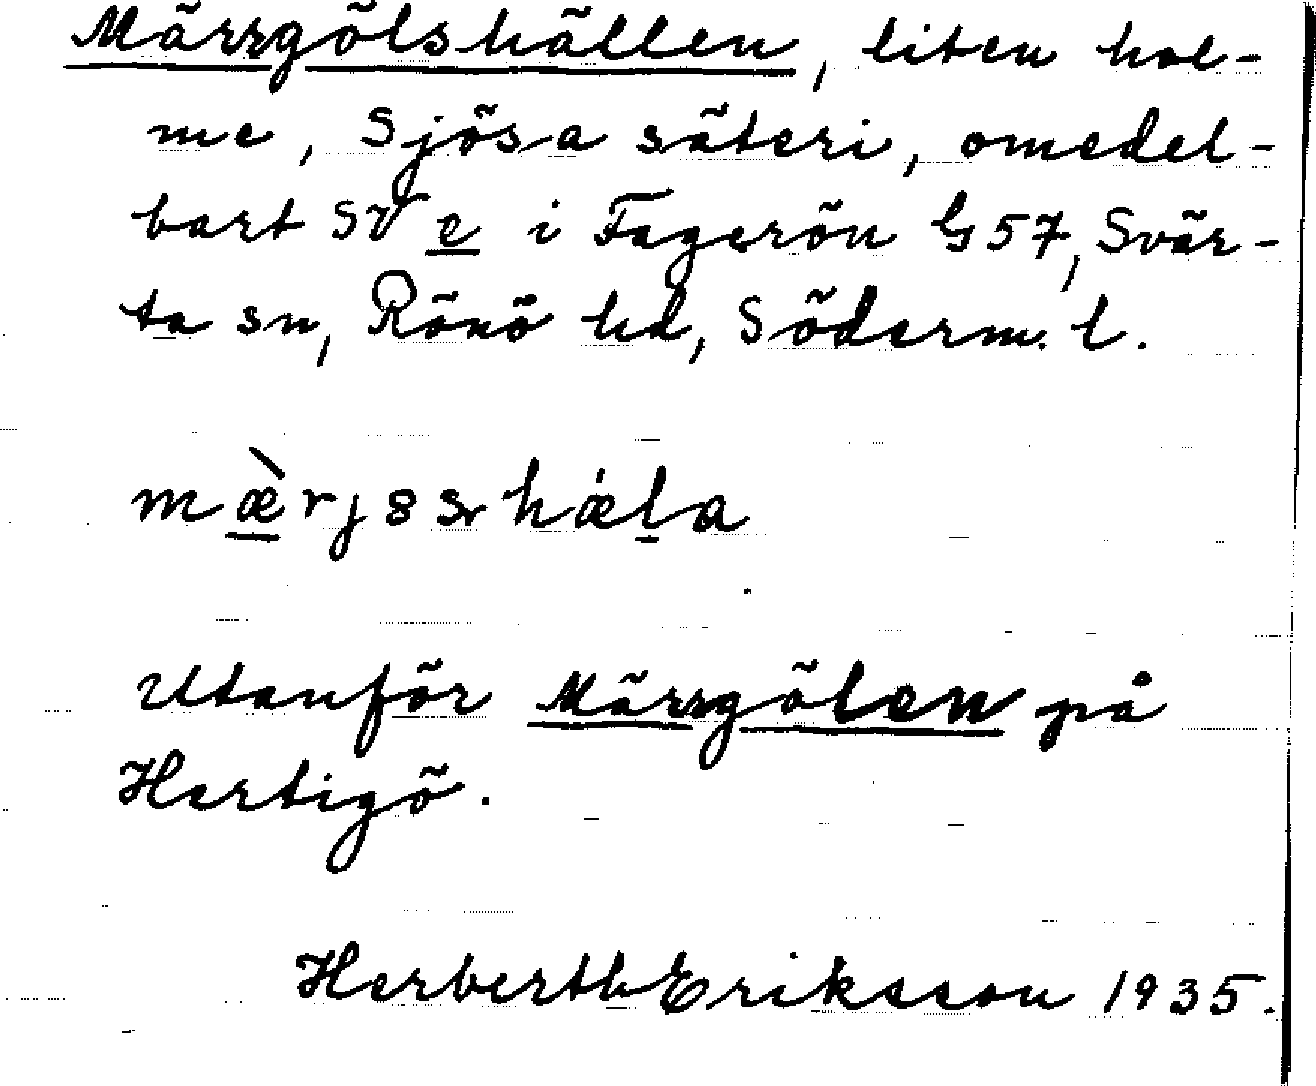 Märrgölshällen, liten hol-
me, Sjösa säteri, omedel-
bart SV e i Fagerön G57, Svär-
ta sn, Rönö hd, Söderm. l.
Utanför Märrgölen på
Hertigö.
Herbert Eriksson 1935.